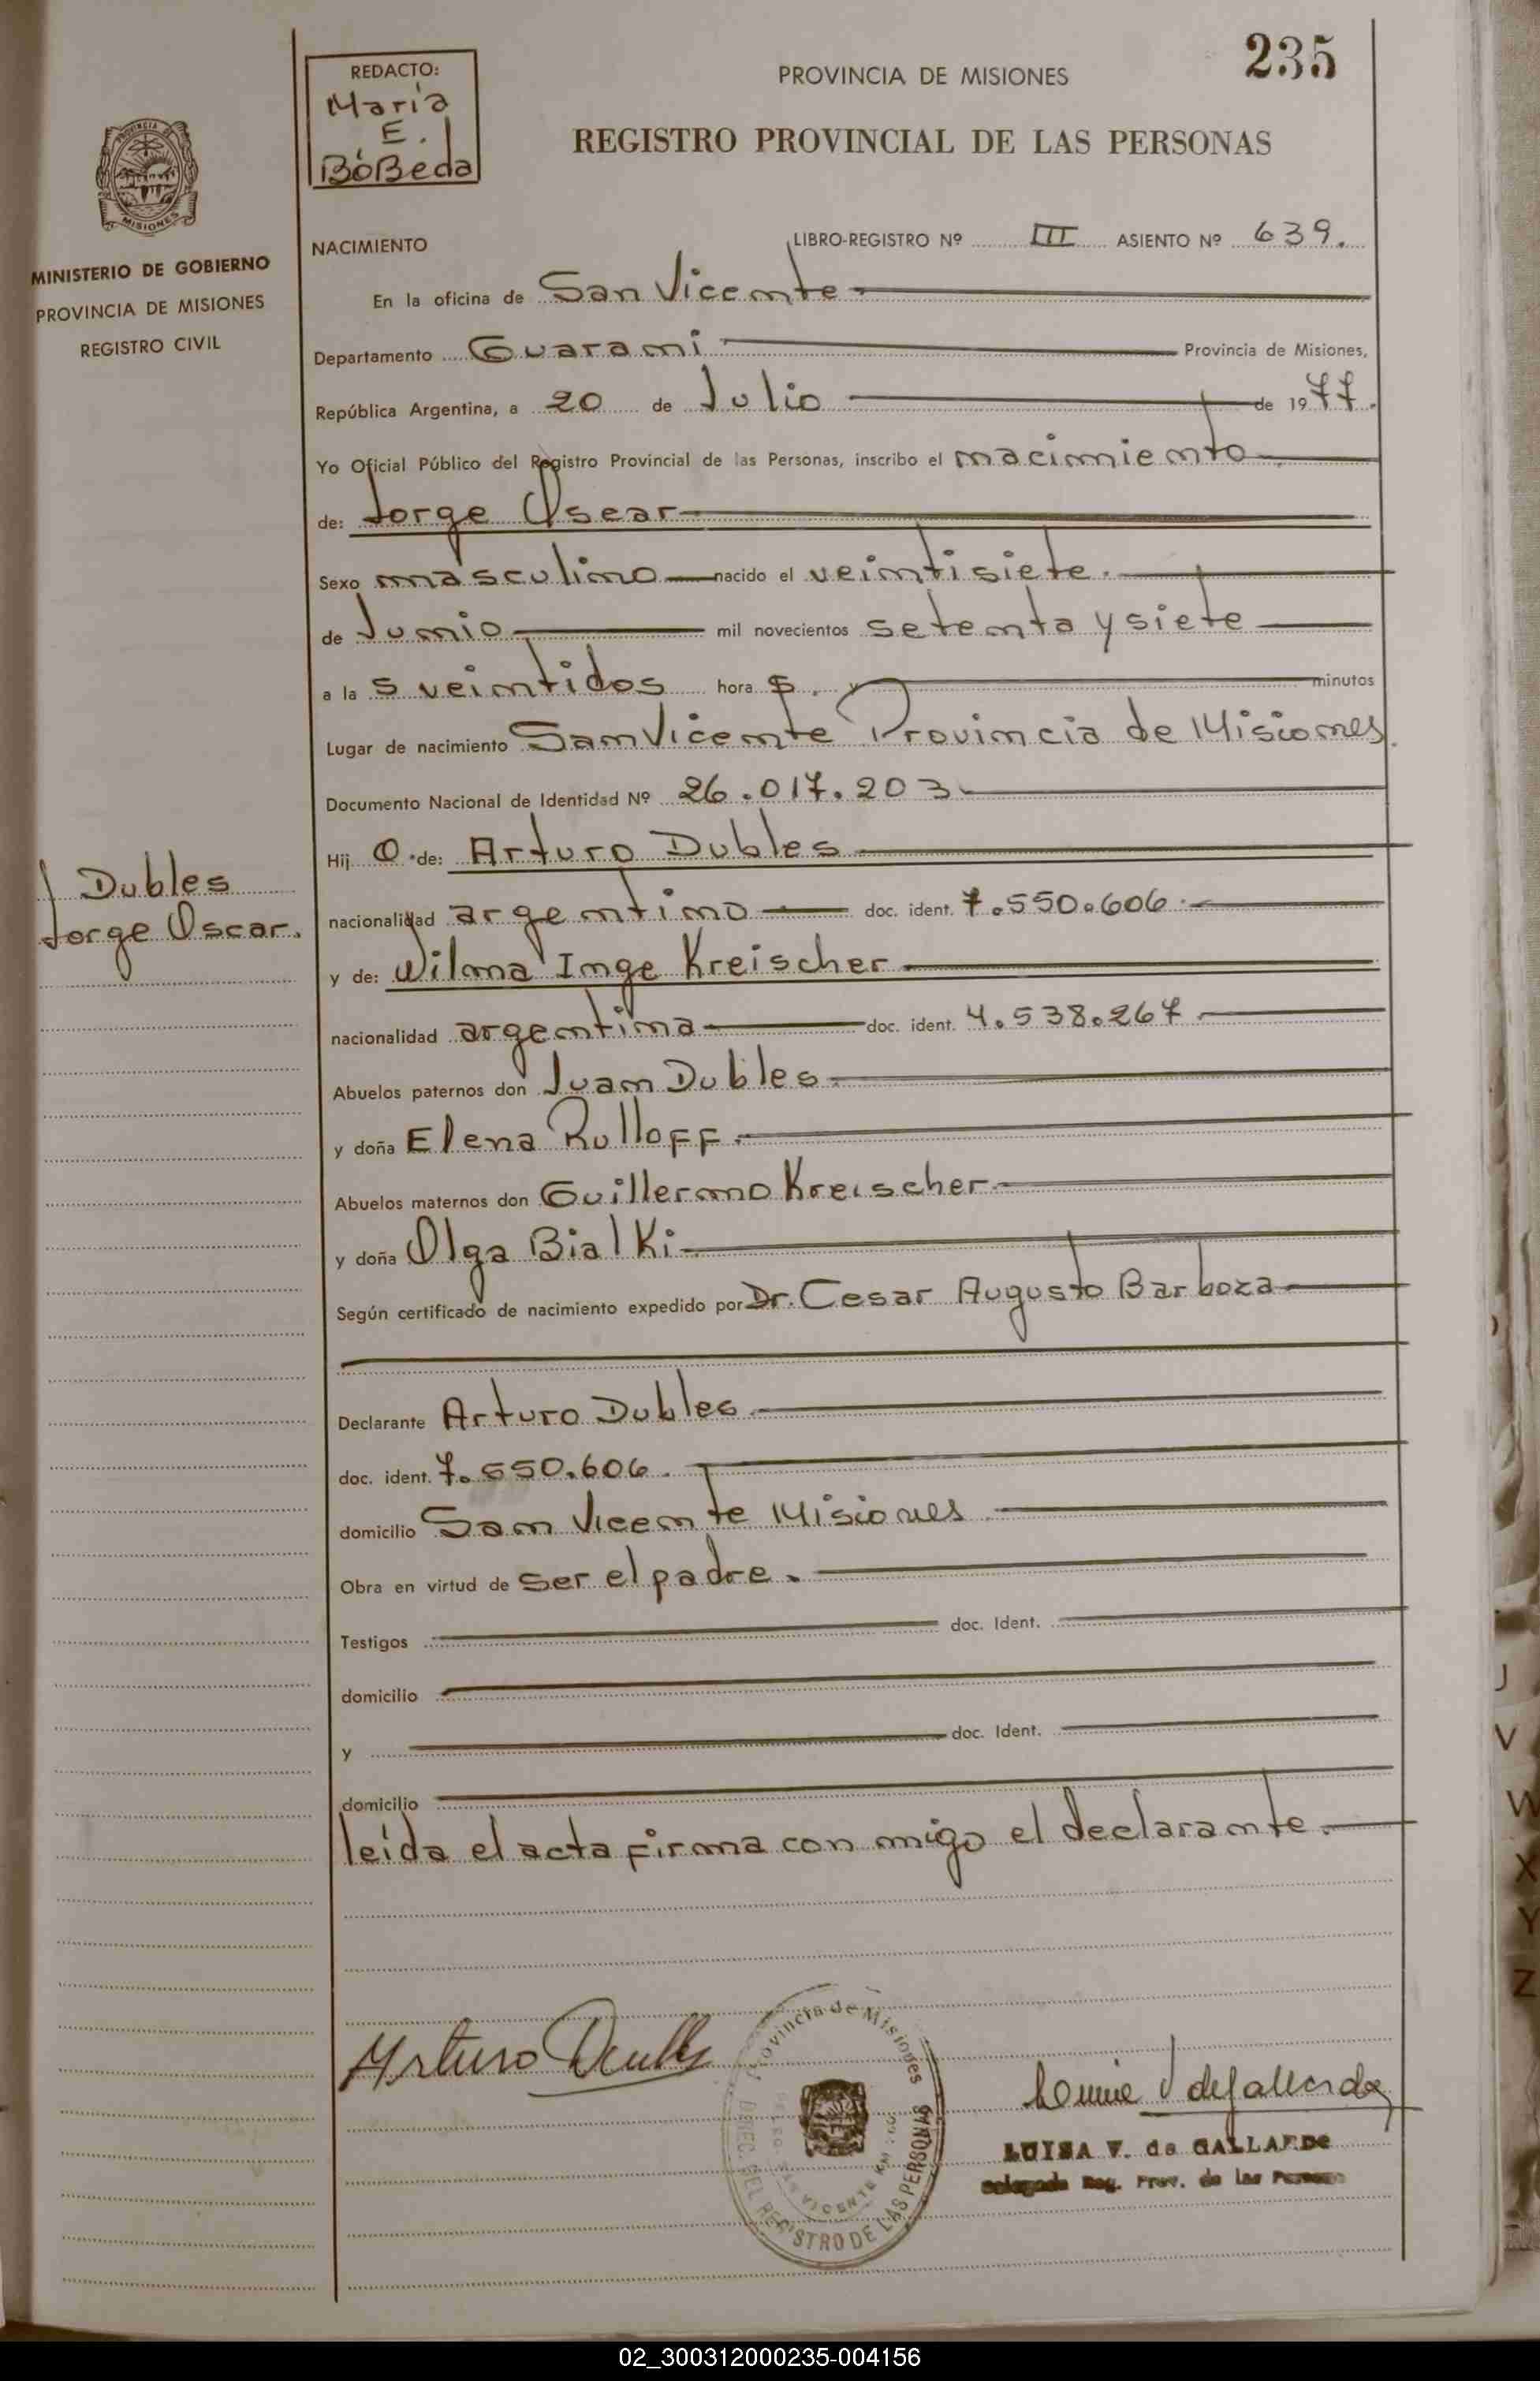 235
REDACTO:
María
E.
BóBeda
PROVINCIA DE MISIONES
REGISTRO PROVINCIAL DE LAS PERSONAS
MISIONES
MINISTERIO DE GOBIERNO
PROVINCIA DE MISIONES
REGISTRO CIVIL
NACIMIENTO LIBRO-REGISTRO Nº III ASIENTO Nº 639.
En la oficina de San Vicente
Departamento Guarami Provincia de Misiones,
República Argentina, a 20 de Julio de 1977.
Yo Oficial Público del Registro Provincial de las Personas, inscribo el nacimiento
de: Jorge Oscar
Sexo masculino nacido el veintisiete.
de Junio mil novecientos setenta y siete
a la s veintidos hora s. y minutos
Lugar de nacimiento San Vicente Provincia de Misiones.
Documento Nacional de Identidad Nº 26.017.203
Hij o de: Arturo Dubles
nacionalidad argentino doc. ident. 7.550.606.
y de: Wilma Inge Kreischer
nacionalidad argentina doc. ident. 4.538.267
Abuelos paternos don Juan Dubles
y doña Elena Rulloff.
Abuelos maternos don Guillermo Kreischer
y doña Olga BialKi
Según certificado de nacimiento expedido por Dr. Cesar Augusto Barboza
Declarante Arturo Dubles
doc. ident. 7.550.606.
domicilio San Vicente Misiones
Obra en virtud de ser el padre.
Testigos doc. Ident.
domicilio
y doc. Ident.
domicilio
leída el acta firma con migo el declarante.
Dubles
Jorge Oscar.
Arturo Dubles
Provincia de Misiones
DIREC. DEL REGISTRO DE LAS PERSONAS
LUISA V. de GALLARDO
Delegada Reg. Prov. de las Personas
02_300312000235-004156